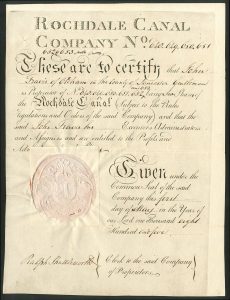 ROCHDALE CANAL
COMPANY No. 649, 650, 651
652 & 653
These are to certify that John
of Oldham in the County of Lancaster
is Proprietor of No. 649, 650, 651, 652 & 653 being Shares of
the Rochdale Canal Subject to the Rules
regulations and Orders of the said Company and that the
said John his Executors Administrators
and Assignees are entitled to the Profits and
Given under the
Common Seal of the said
Company this first
day of May in the Year of
our Lord one thousand eight
Hundred and five
Ralph Shuttleworth Clerk to the said Company
of Proprietors